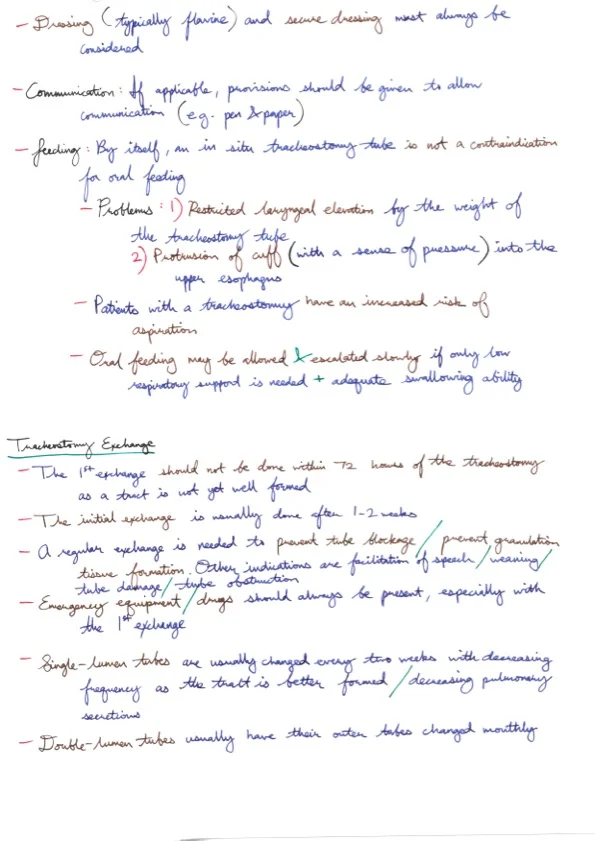 - Dressing (typically flavine) and secure dressing must always be
considered
- Communication: If applicable, provisions should be given to allow
communication (e.g. pen & paper)
- feeding: By itself, an in situ tracheostomy tube is not a contraindication
for oral feeding
- Problems: 1) Restricted laryngeal elevation by the weight of
the tracheostomy tube
2) Protrusion of cuff (with a sense of pressure) into the
upper esophagus
- Patients with a tracheostomy have an increased risk of
aspiration
- Oral feeding may be allowed & escalated slowly if only low
respiratory support is needed + adequate swallowing ability
Tracheostomy Exchange
- The 1st exchange should not be done within 72 hours of the tracheostomy
as a tract is not yet well formed
- The initial exchange is usually done after 1-2 weeks
- A regular exchange is needed to prevent tube blockage / prevent granulation
tissue formation. Other indications are facilitation of speech / weaning /
tube damage / tube obstruction
- Emergency equipment / drugs should always be present, especially with
the 1st exchange
- Single-lumen tubes are usually changed every two weeks with decreasing
frequency as the tract is better formed / decreasing pulmonary
secretions
- Double-lumen tubes usually have their outer tubes changed monthly